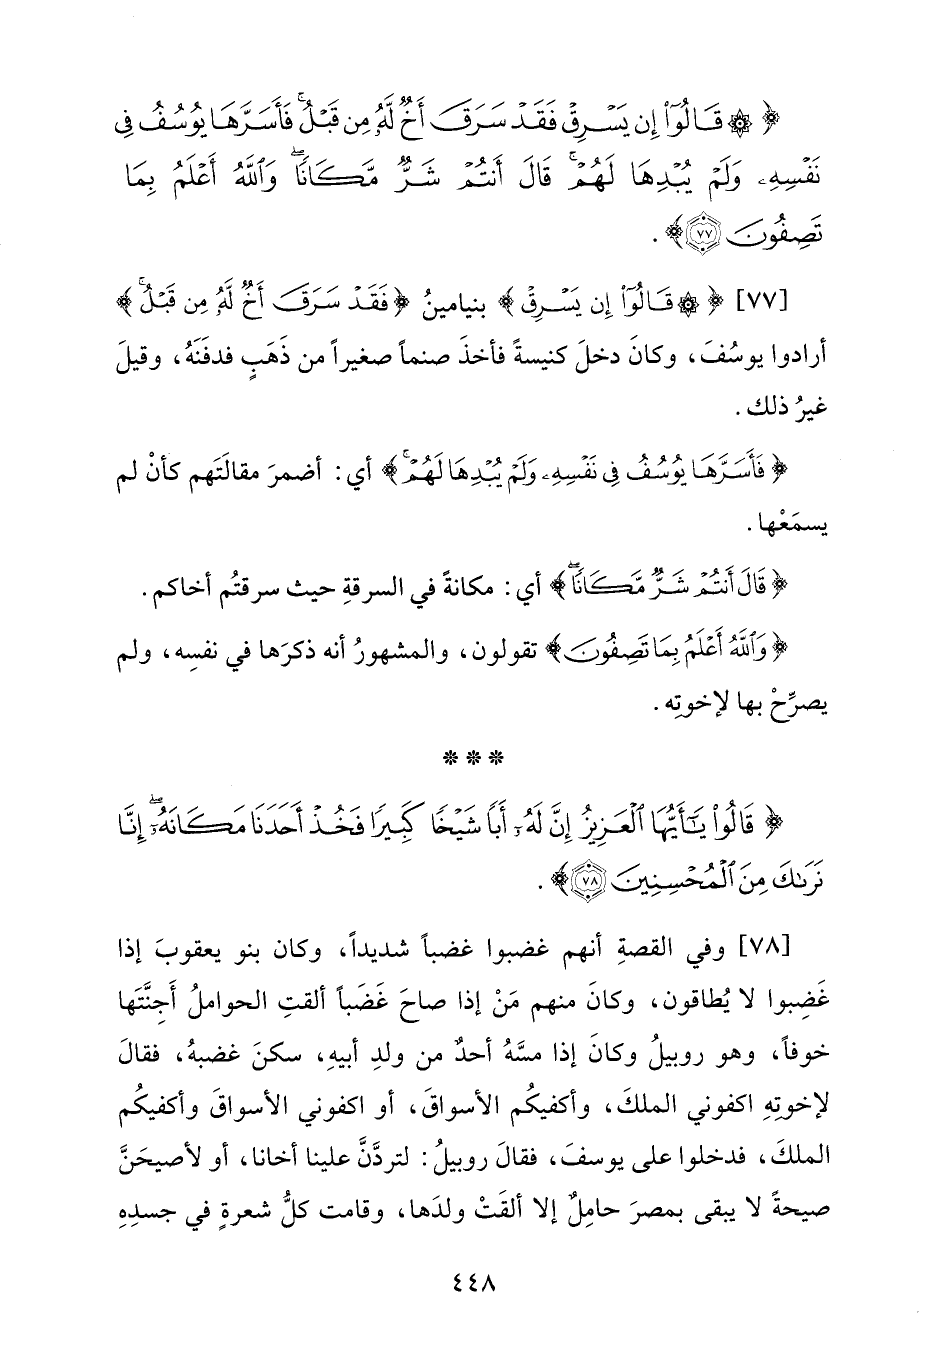 ﴿ ۞ قَالُوٓا۟ إِن يَسْرِقْ فَقَدْ سَرَقَ أَخٌ لَّهُۥ مِن قَبْلُ ۚ فَأَسَرَّهَا يُوسُفُ فِى
نَفْسِهِۦ وَلَمْ يُبْدِهَا لَهُمْ ۚ قَالَ أَنتُمْ شَرٌّ مَّكَانًا ۖ وَٱللَّهُ أَعْلَمُ بِمَا
تَصِفُونَ ٧٧ ﴾ .
[٧٧] ﴿ ۞ قَالُوٓا۟ إِن يَسْرِقْ ﴾ بنيامينُ ﴿ فَقَدْ سَرَقَ أَخٌ لَّهُۥ مِن قَبْلُ ۚ ﴾
أرادوا يوسُفَ، وكانَ دخلَ كنيسةً فأخذَ صنماً صغيراً من ذَهَبٍ فدفَنَهُ، وقيلَ
غيرُ ذلك .
﴿ فَأَسَرَّهَا يُوسُفُ فِى نَفْسِهِۦ وَلَمْ يُبْدِهَا لَهُمْ ۚ ﴾ أي: أضمرَ مقالَتَهم كأنْ لم
يسمَعْها .
﴿ قَالَ أَنتُمْ شَرٌّ مَّكَانًا ۖ ﴾ أي: مكانةً في السرقةِ حيث سرقتُم أخاكم .
﴿ وَٱللَّهُ أَعْلَمُ بِمَا تَصِفُونَ ﴾ تقولون، والمشهورُ أنه ذكرَها في نفسِه، ولم
يصرِّحْ بها لإخوتِه .
* * *
﴿ قَالُوا۟ يَـٰٓأَيُّهَا ٱلْعَزِيزُ إِنَّ لَهُۥٓ أَبًا شَيْخًا كَبِيرًا فَخُذْ أَحَدَنَا مَكَانَهُۥٓ ۖ إِنَّا
نَرَىٰكَ مِنَ ٱلْمُحْسِنِينَ ٧٨ ﴾ .
[٧٨] وفي القصةِ أنهم غضبوا غضباً شديداً، وكان بنو يعقوبَ إذا
غَضِبوا لا يُطاقون، وكانَ منهم مَنْ إذا صاحَ غَضَباً ألقتِ الحواملُ أَجِنَّتَها
خوفاً، وهو روبيلُ وكانَ إذا مسَّهُ أحدٌ من ولدِ أبيهِ، سكنَ غضبهُ، فقالَ
لإخوتِهِ اكفوني الملكَ، وأكفيكُم الأسواقَ، أو اكفوني الأسواقَ وأكفيكُم
الملكَ، فدخلوا على يوسفَ، فقالَ روبيلُ: لتردَّنَّ علينا أخانا، أو لأصيحَنَّ
صيحةً لا يبقى بمصرَ حامِلٌ إلا ألقَتْ ولدَها، وقامت كلُّ شعرةٍ في جسدِهِ
٤٤٨